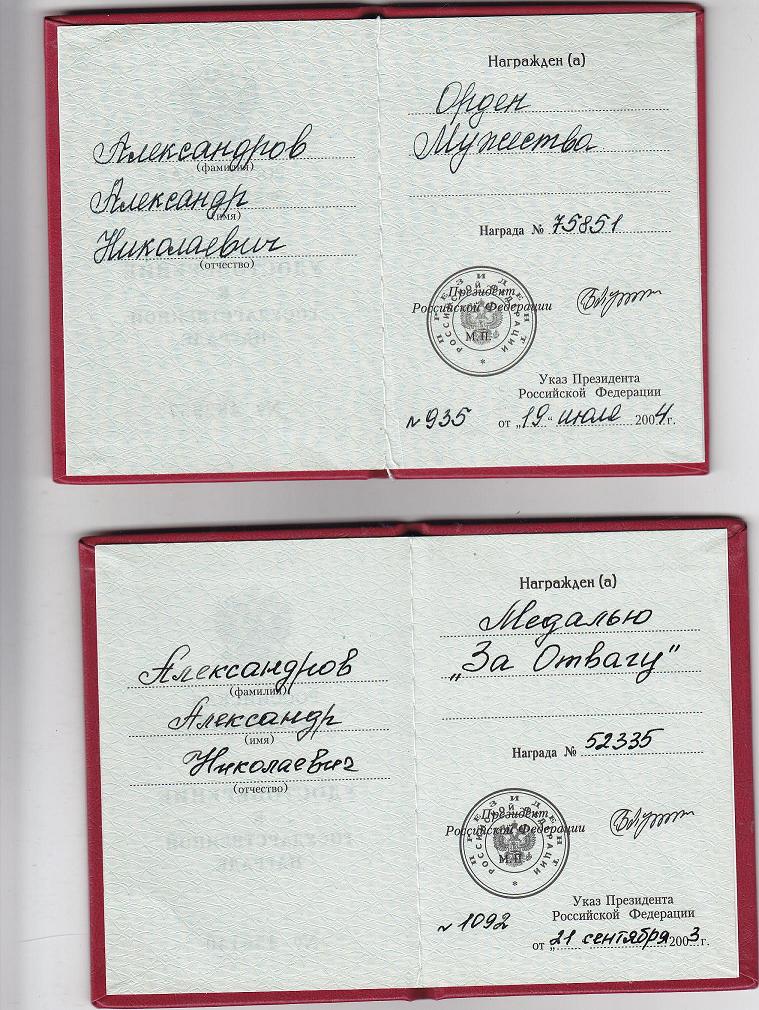 Александров
(фамилия)
Александр
(имя)
Николаевич
(отчество)
Награжден (а)
Орден
Мужества
Награда № 75851
ПРЕЗИДЕНТ
РОССИЙСКОЙ ФЕДЕРАЦИИ
Президент
Российской Федерации
М.П.
Указ Президента
Российской Федерации
№935 от „19“ июля 2004 г.
Александров
(фамилия)
Александр
(имя)
Николаевич
(отчество)
Награжден (а)
Медалью
„За Отвагу"
Награда № 52335
ПРЕЗИДЕНТ
РОССИЙСКОЙ ФЕДЕРАЦИИ
Президент
Российской Федерации
М.П.
Указ Президента
Российской Федерации
№ 1092 от „21 сентября 2003 г.